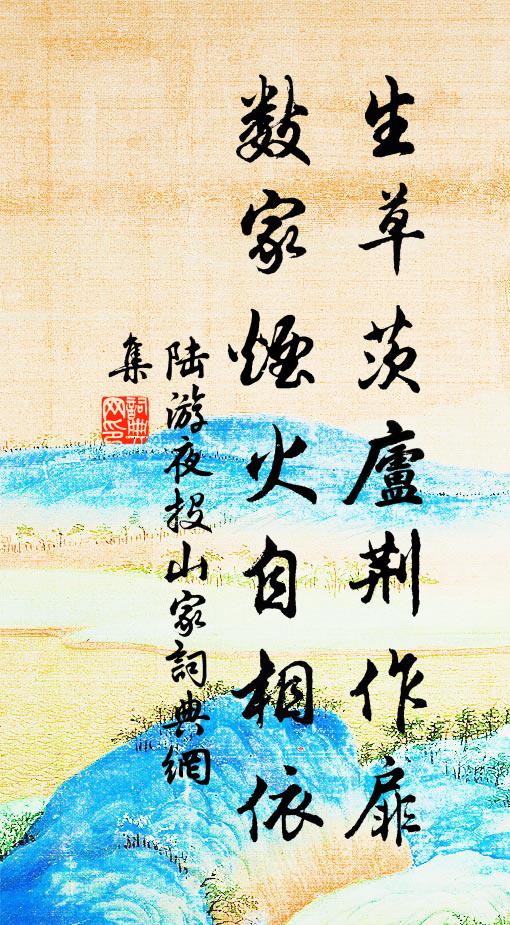 生草茨廬荆作扉
數家煙火自相依
陆游夜投山家詞典網
集
詞典
网印